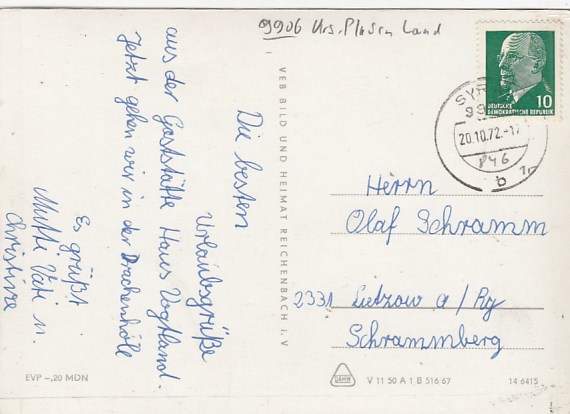 9906 Urs. Plasen Land
DEUTSCHE
DEMOKRATISCHE REPUBLIK
10
SYR
99
20.10.72-17
b
Die besten
Urlaubsgrüße
aus der Gaststätte Haus Vogtland.
Jetzt gehen wir in der Drachenhölle
Es grüßt
Mutti Vati u.
Christine
VEB BILD UND HEIMAT REICHENBACH i. V
Herrn
Olaf Schramm
2331 Lietzow a/Rg
Schrammberg
EVP -,20 MDN
V 11 50 A 1 B 516/67
14 6415